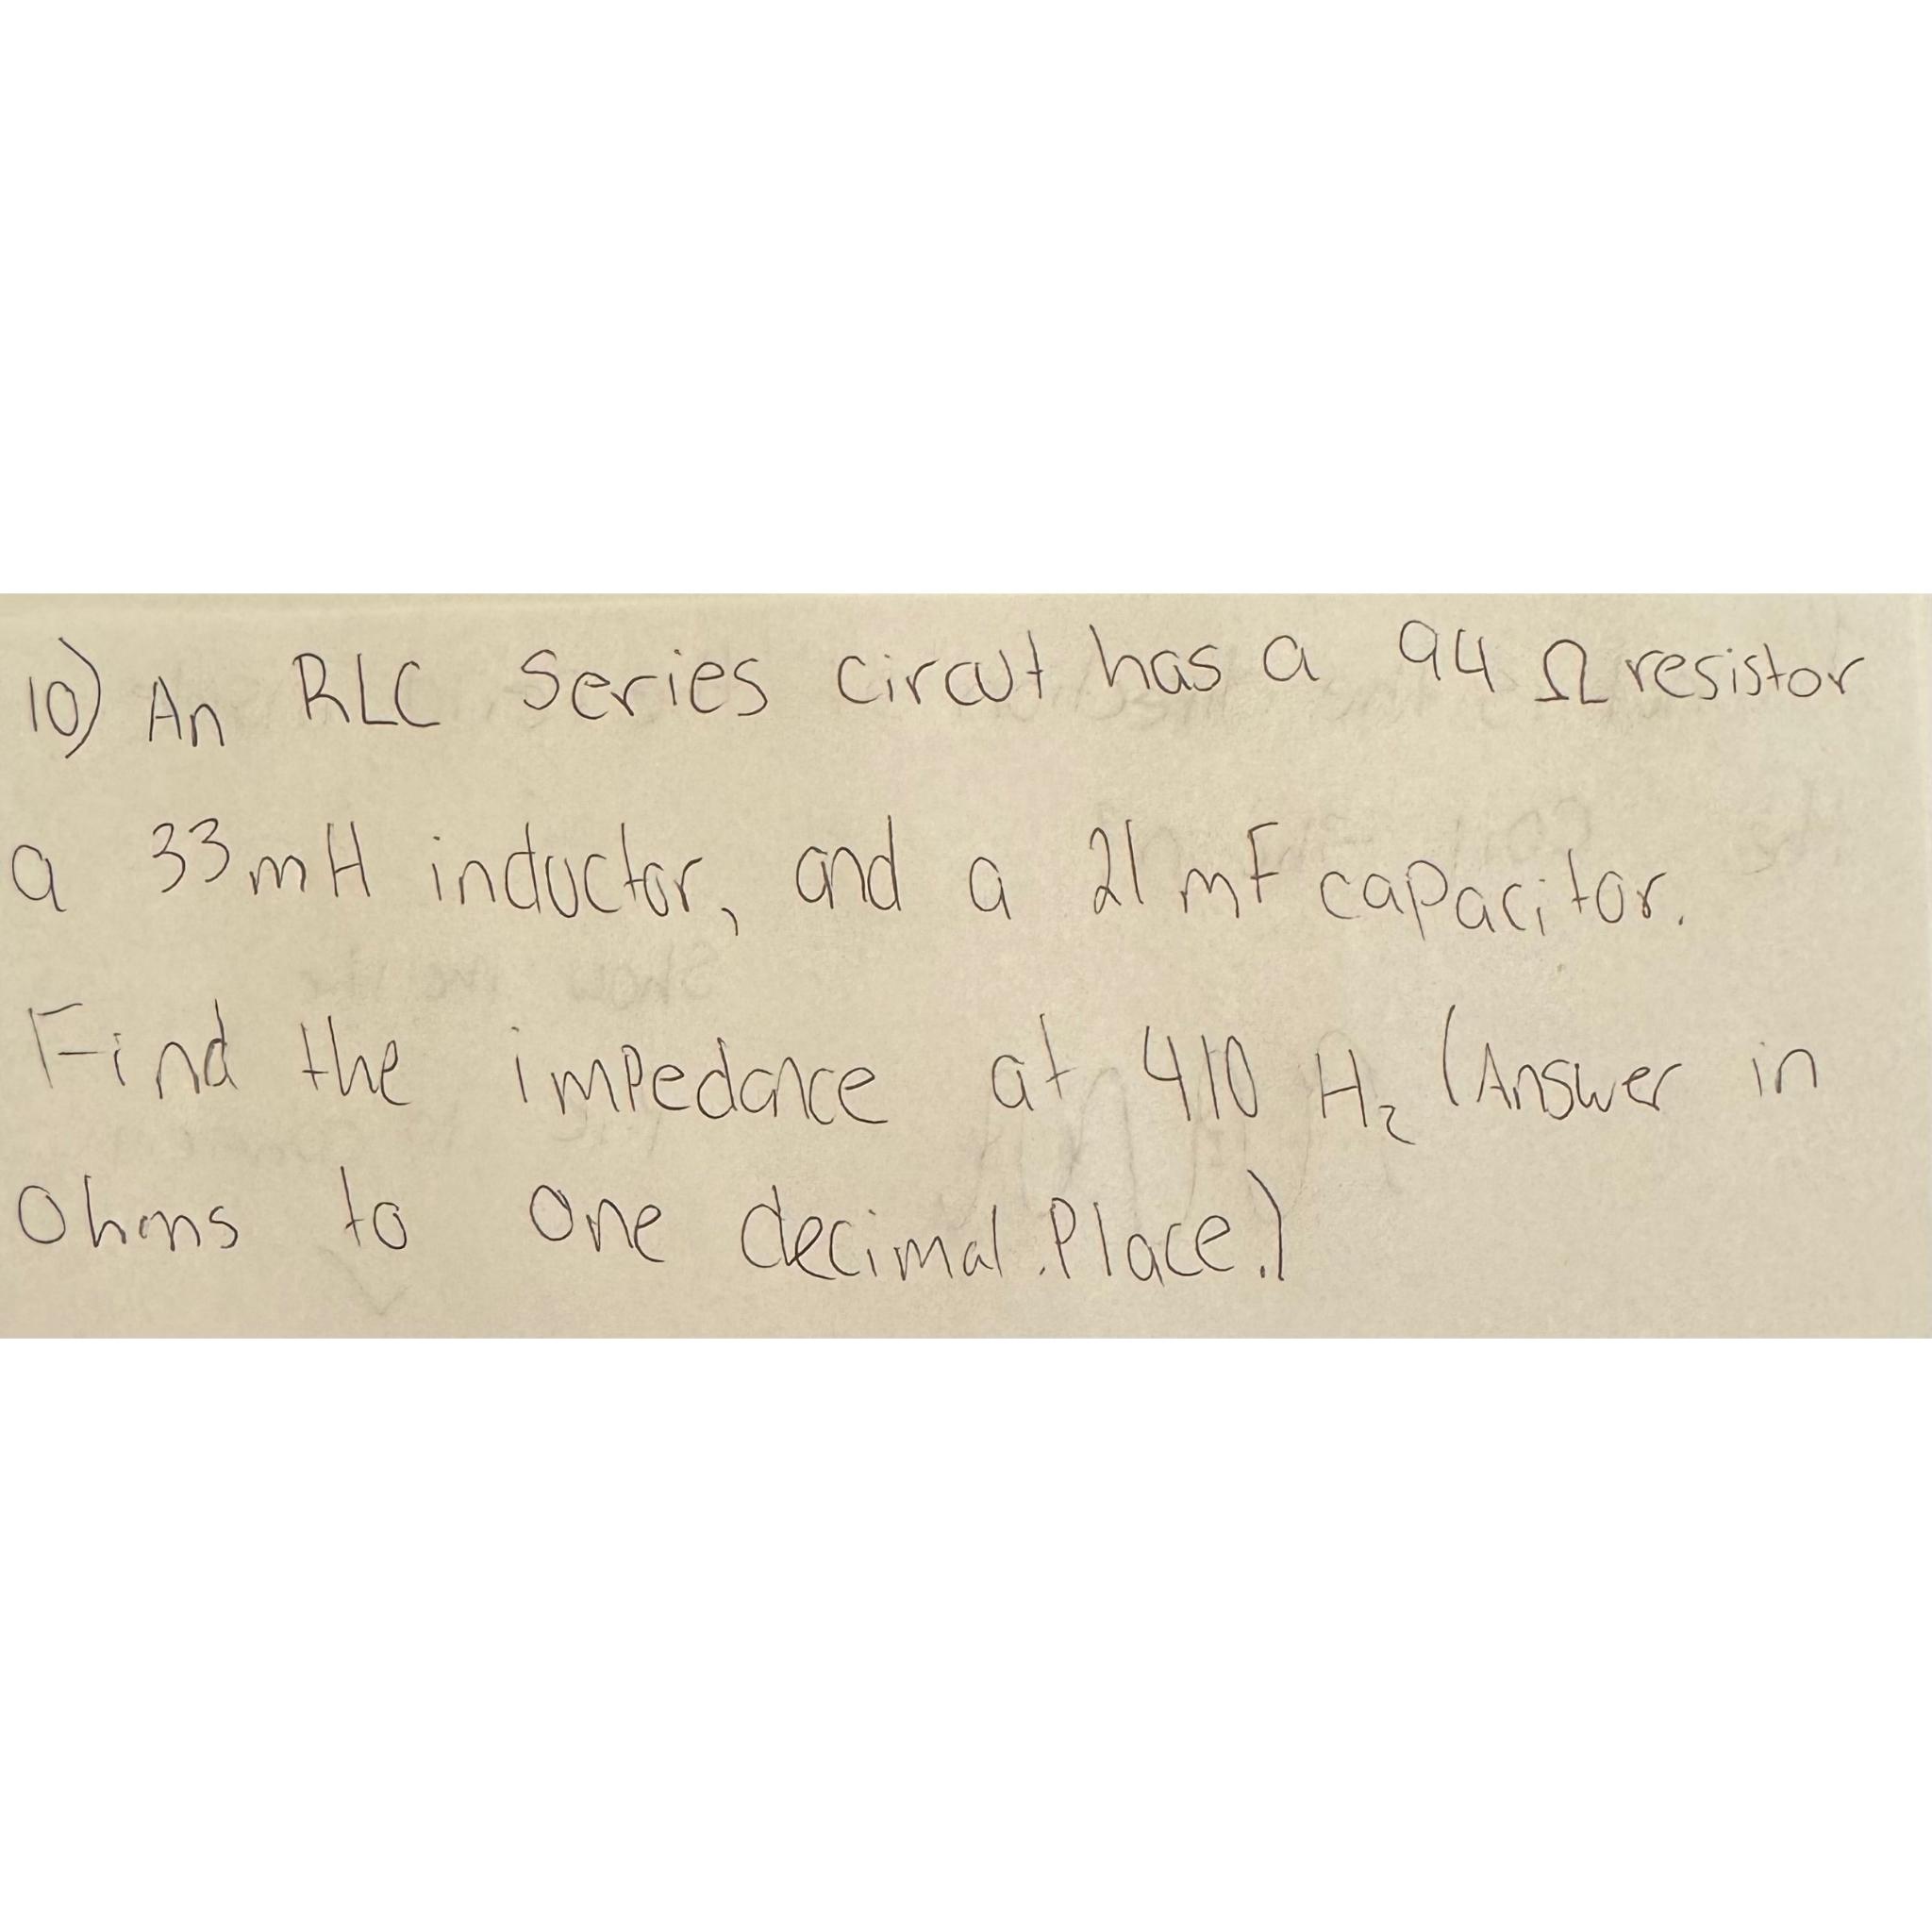 10) An RLC Series circut has a 94 Ω resistor
a 33mH inductor, and a 21 mF capacitor.
Find the impedance at 410 Hz (Answer in
Ohms to one decimal place.)